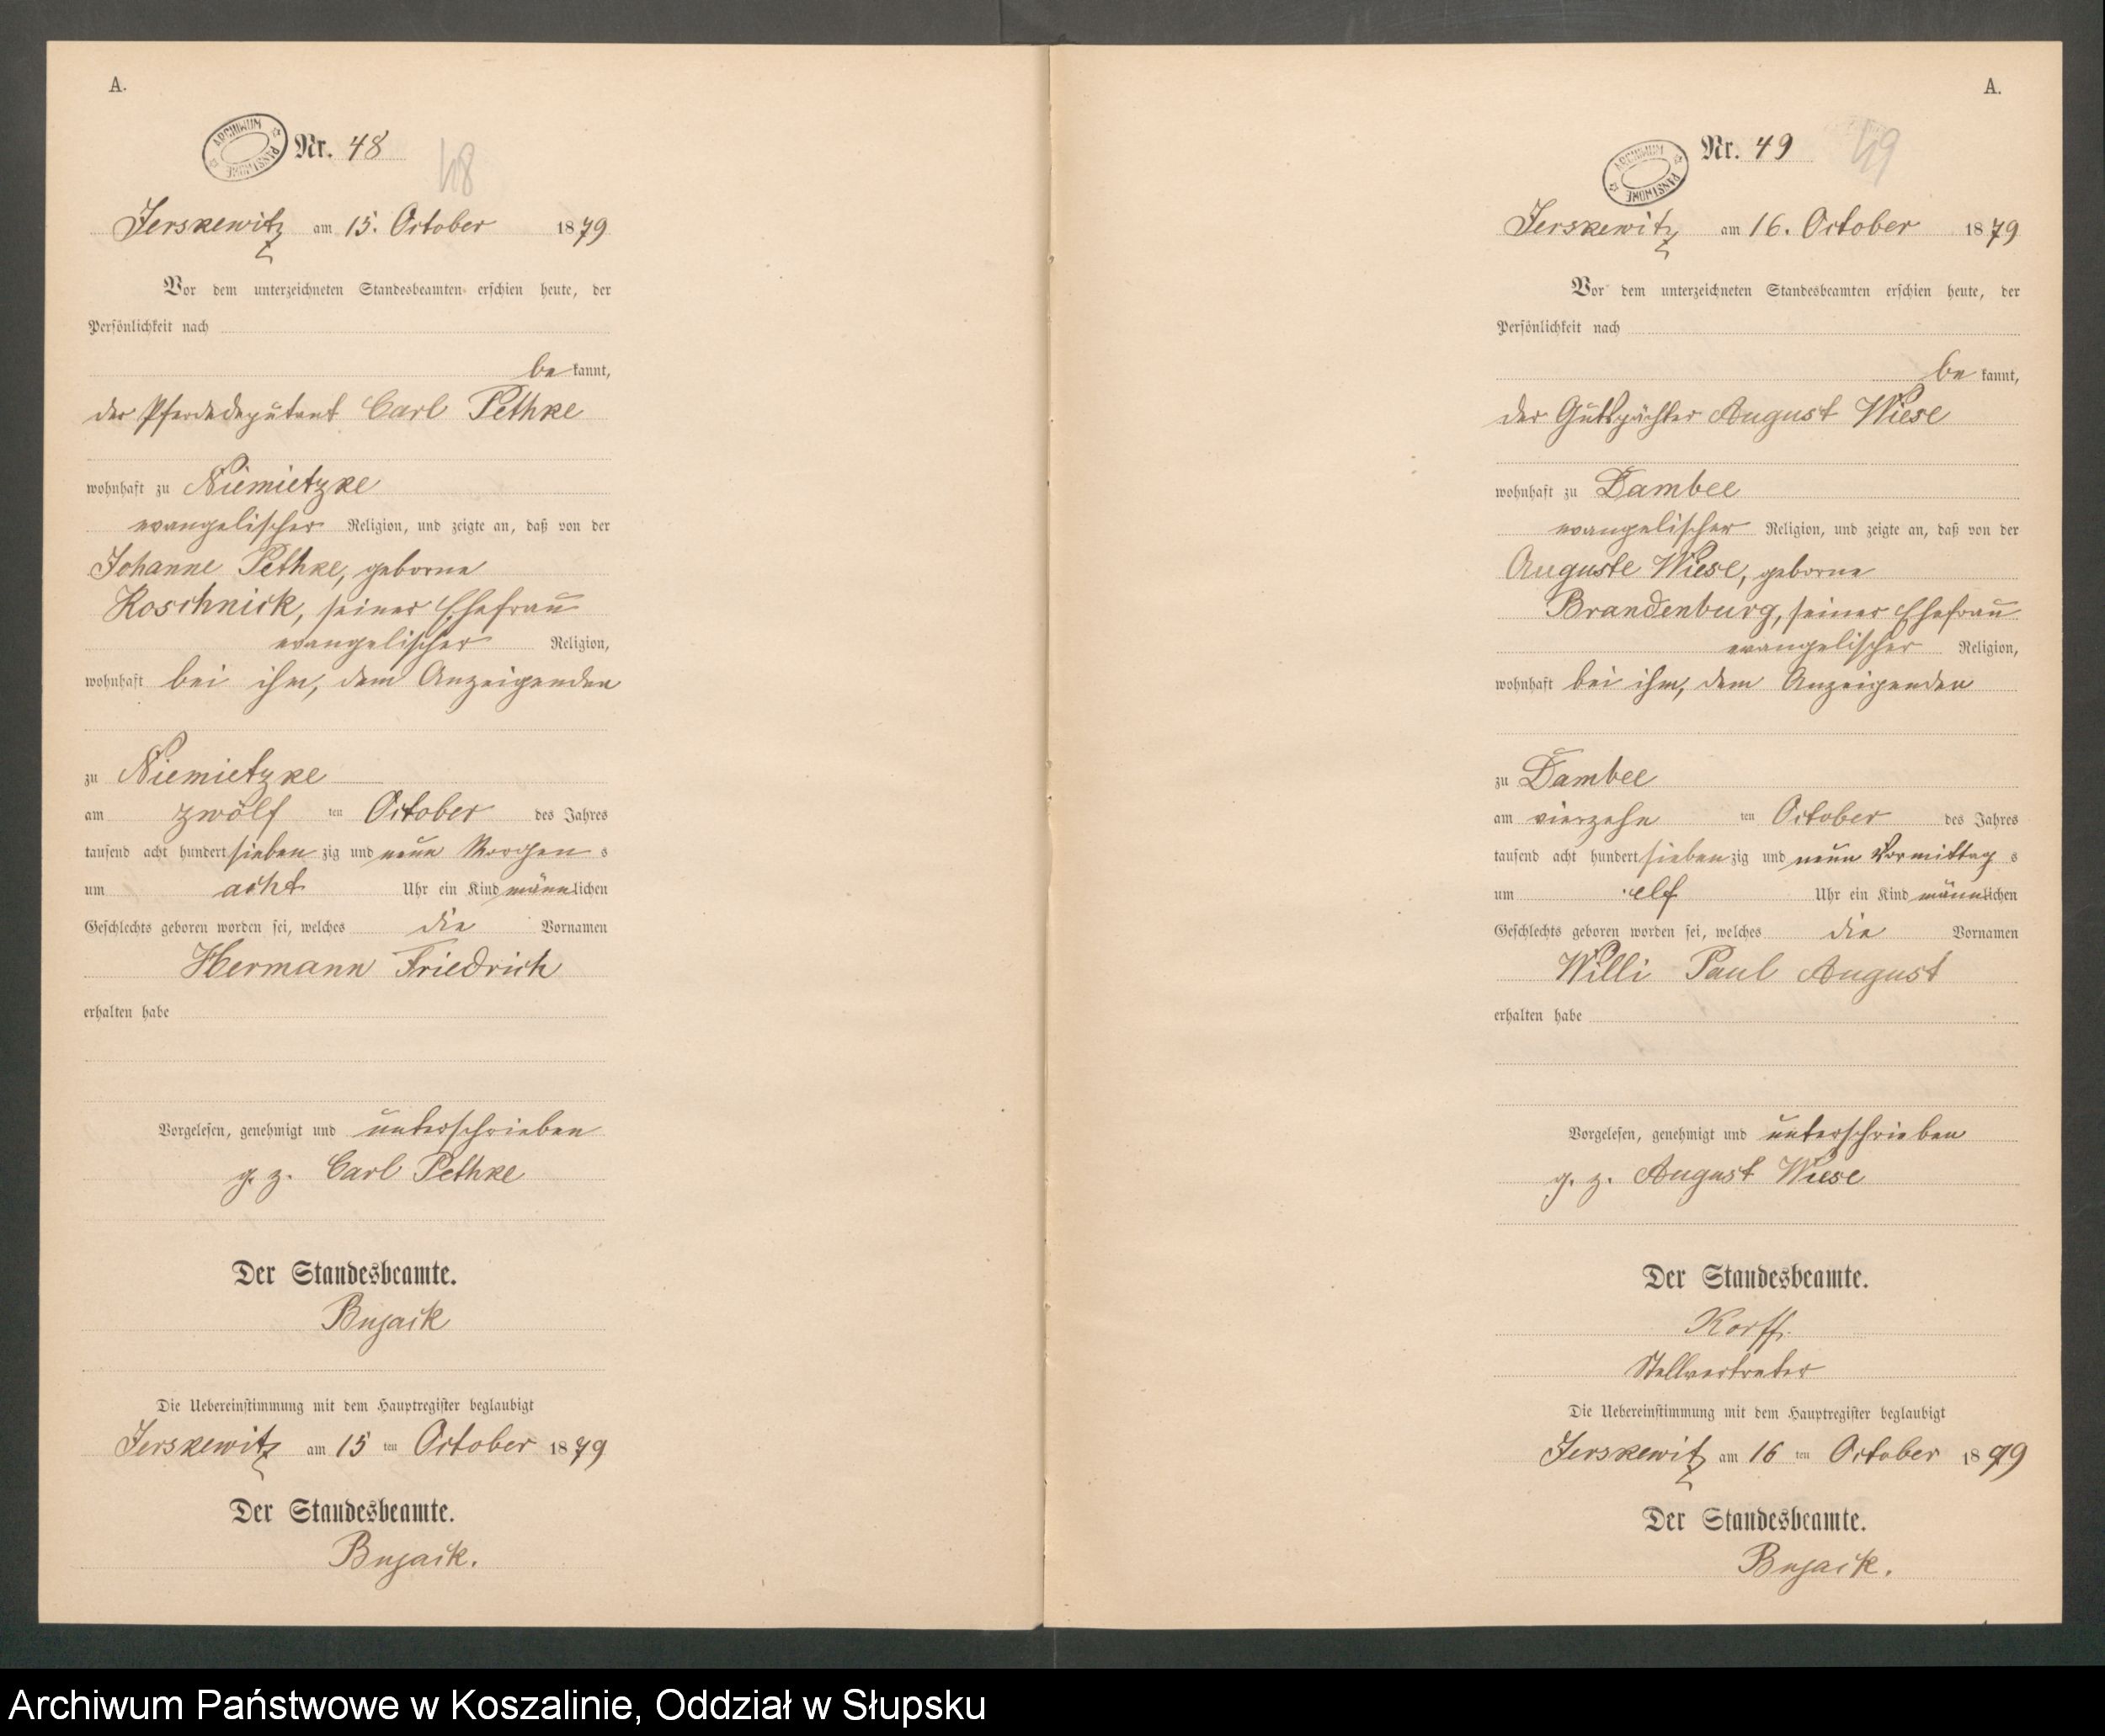 A.
ARCHIWUM PAŃSTWOWE
Nr. 48
48
Jerskewitz am 15. October 1879
Vor dem unterzeichneten Standesbeamten erschien heute, der
Persönlichkeit nach
be kannt,
der Pferdedeputant Carl Pethke
wohnhaft zu Niemietzke
evangelischer Religion, und zeigte an, daß von der
Johanne Pethke, geborne
Koschnick, seiner Ehefrau
evangelischer Religion,
wohnhaft bei ihm, dem Anzeigenden
zu Niemietzke
am zwölf ten October des Jahres
tausend acht hundert sieben zig und neun Morgen s
um acht Uhr ein Kind männlichen
Geschlechts geboren worden sei, welches die Vornamen
Hermann Friedrich
erhalten habe
Vorgelesen, genehmigt und unterschrieben
g. z. Carl Pethke
Der Standesbeamte.
Bujack
Die Uebereinstimmung mit dem Hauptregister beglaubigt
Jerskewitz am 15 ten October 1879
Der Standesbeamte.
Bujack.
A.
ARCHIWUM PAŃSTWOWE
Nr. 49
49
Jerskewitz am 16. October 1879
Vor dem unterzeichneten Standesbeamten erschien heute, der
Persönlichkeit nach
be kannt,
der Gutspächter August Wiese
wohnhaft zu Dambee
evangelischer Religion, und zeigte an, daß von der
Auguste Wiese, geborne
Brandenburg, seiner Ehefrau
evangelischer Religion,
wohnhaft bei ihm, dem Anzeigenden
zu Dambee
am vierzehn ten October des Jahres
tausend acht hundert sieben zig und neun Vormittag s
um elf Uhr ein Kind männlichen
Geschlechts geboren worden sei, welches die Vornamen
Willi Paul August
erhalten habe
Vorgelesen, genehmigt und unterschrieben
g. z. August Wiese
Der Standesbeamte.
Korff.
Stellvertreter
Die Uebereinstimmung mit dem Hauptregister beglaubigt
Jerskewitz am 16 ten October 1879
Der Standesbeamte.
Bujack.
Archiwum Państwowe w Koszalinie, Oddział w Słupsku